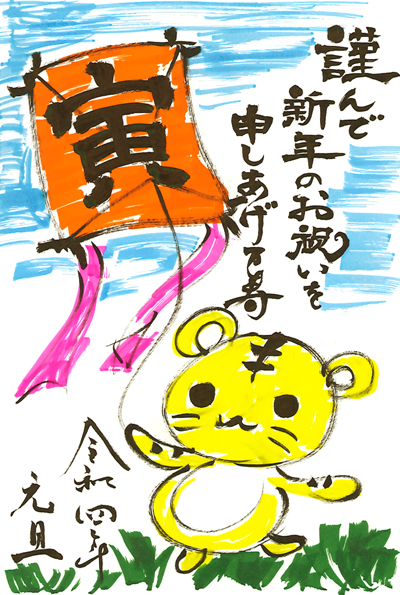 謹んで
新年のお祝いを
申しあげ万寿
寅
令和四年
元旦